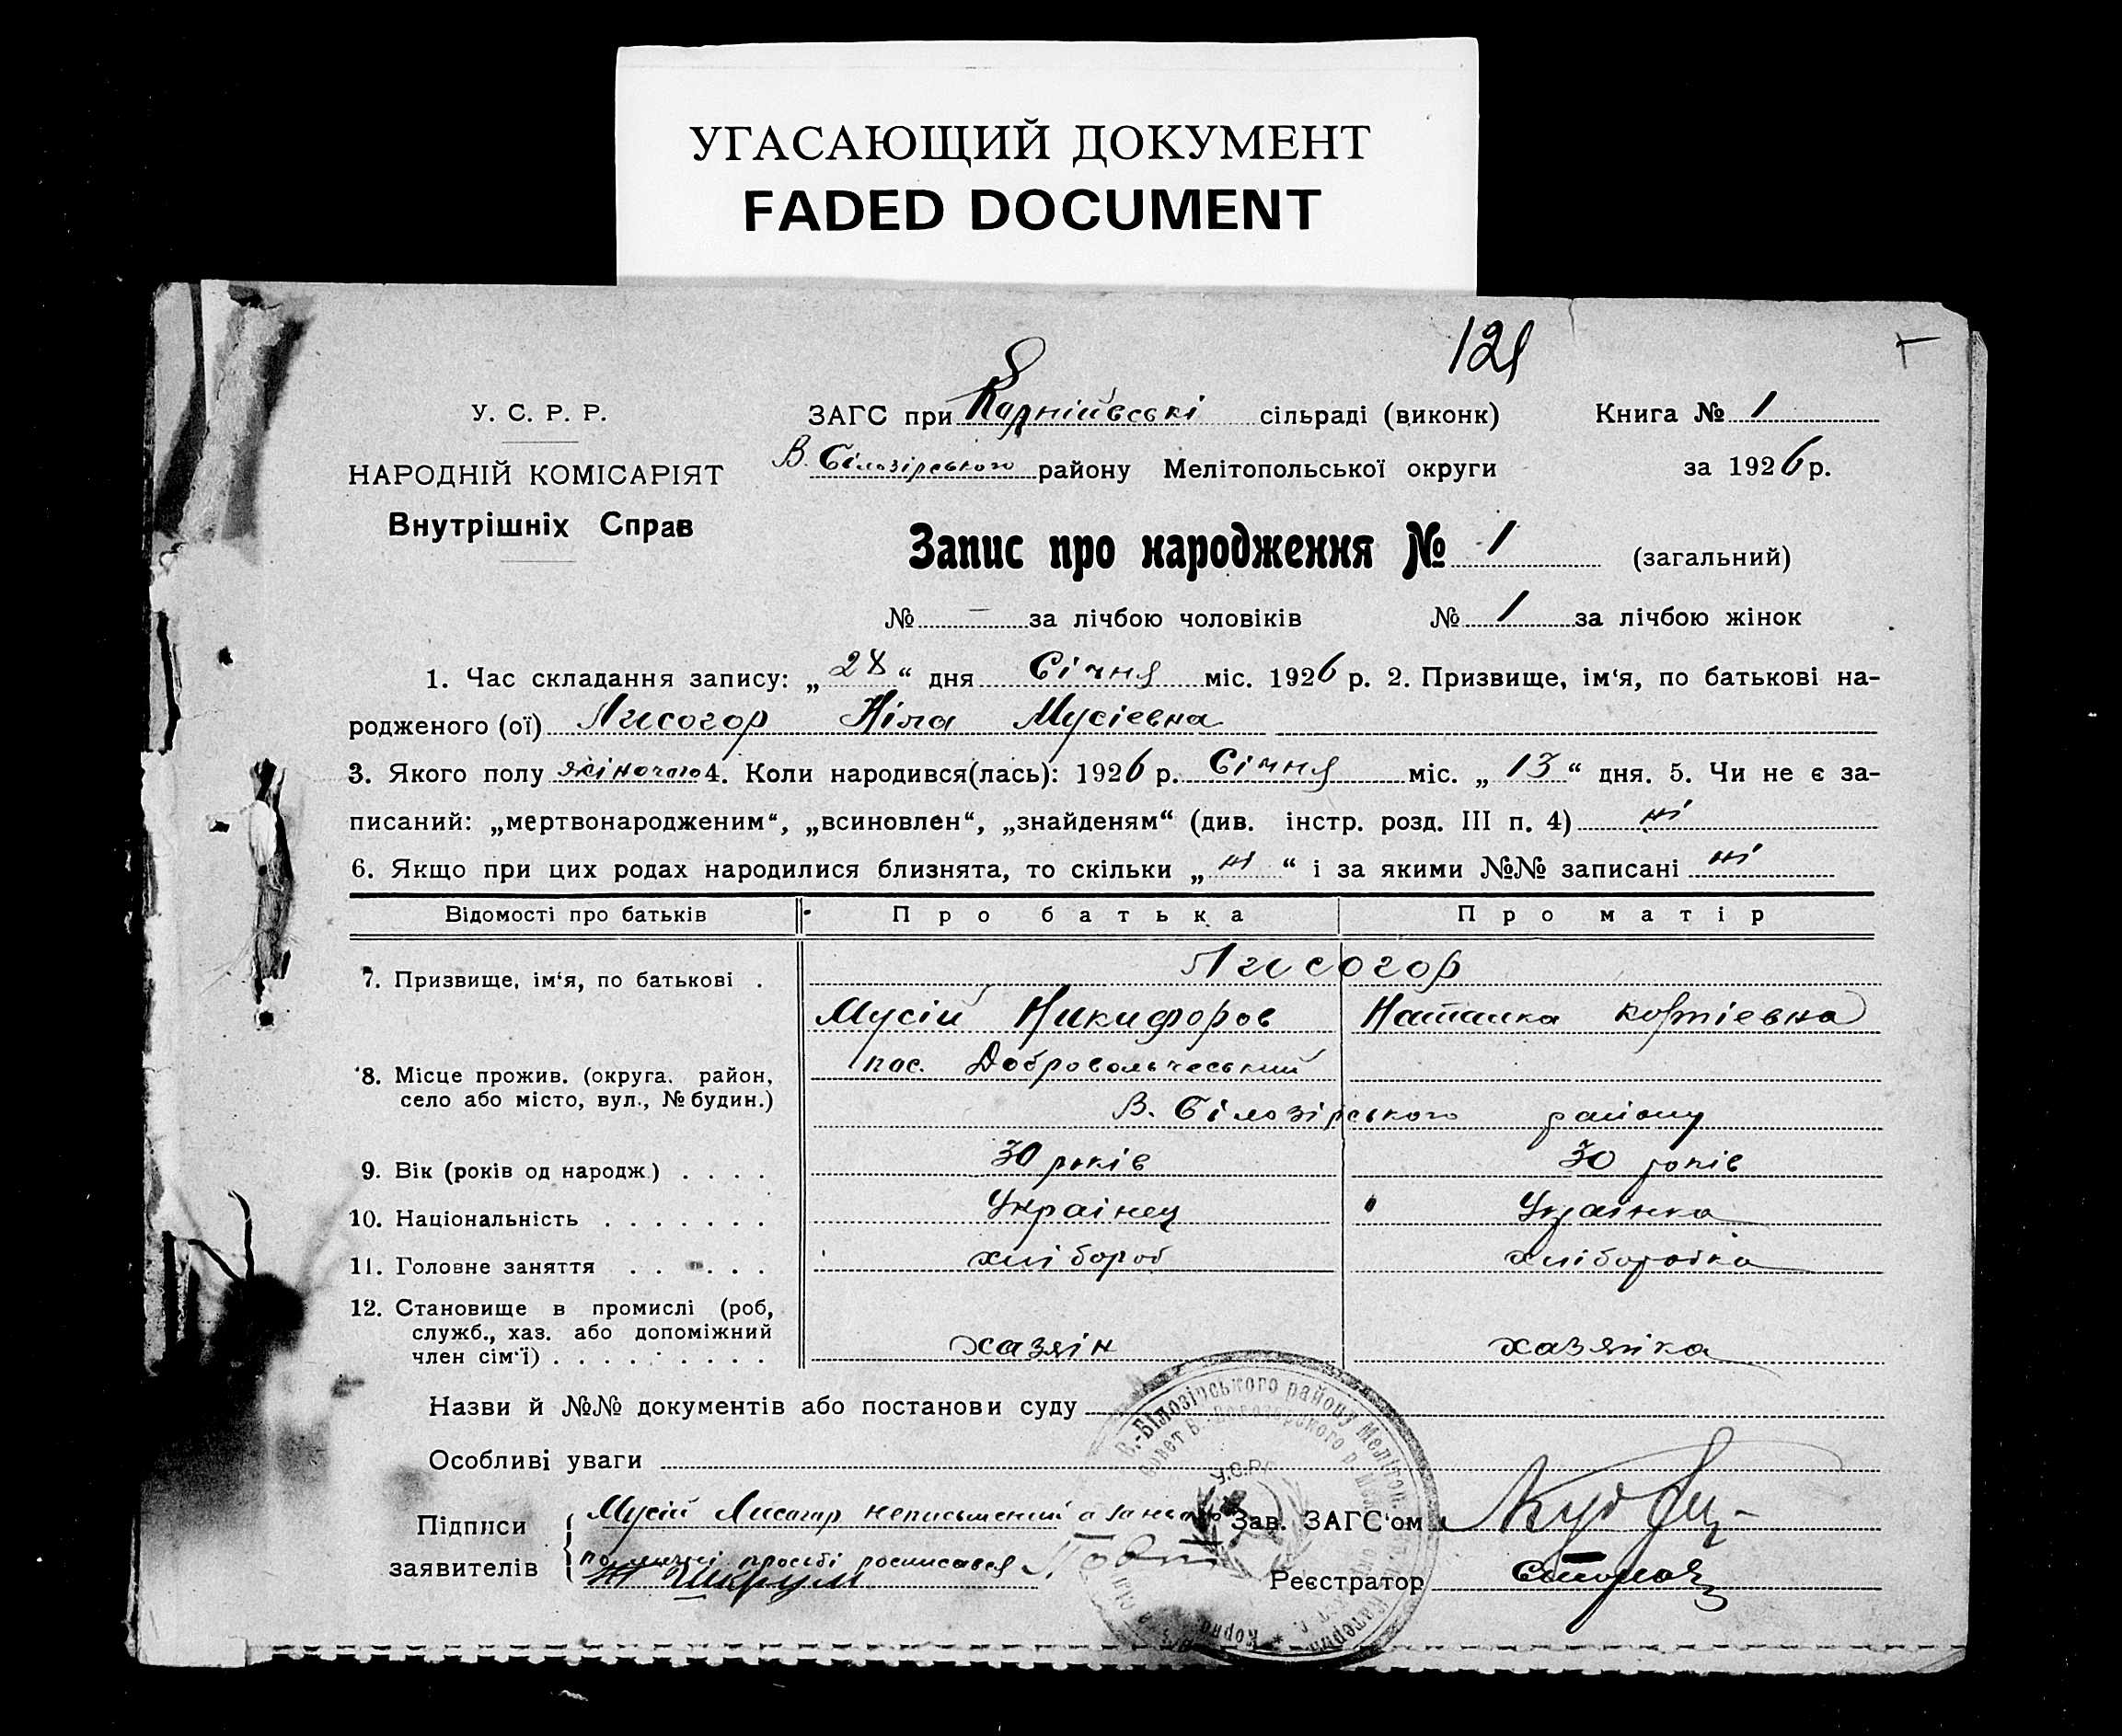 УГАСАЮЩИЙ ДОКУМЕНТ
FADED DOCUMENT
121
У. С. Р. Р.
ЗАГС при Карніївські сільраді (виконк) Книга № 1
НАРОДНІЙ КОМІСАРІЯТ
В. Білозірського району Мелітопольської округи за 1926 р.
Внутрішніх Справ
Запис про народження № 1 (загальний)
№ – за лічбою чоловіків № 1 за лічбою жінок
1. Час складання запису: „28“ дня Січня міс. 1926 р. 2. Призвище, ім'я, по батькові на-
родженого (ої) Лисогор Ніла Мусіевна
3. Якого полу жіночого 4. Коли народився(лась): 1926 р. Січня міс. „13“ дня. 5. Чи не є за-
писаний: „мертвонародженим“, „всиновлен“, „знайденям“ (див. інстр. розд. III п. 4) ні
6. Якщо при цих родах народилися близнята, то скільки „ні“ і за якими №№ записані ні
Відомості про батьків Про батька Про матір
Лисогор
7. Призвище, ім'я, по батькові .
Мусій Никифоров Наталка
пос. Добровольческий
8. Місце прожив. (округа. район,
село або місто, вул., № будин.)
В. Білозірського району
9. Вік (років од народж.) . . . . 30 років 30 років
10. Національність . . . . . . . Українец Українка
11. Головне заняття . . . . . . хлібороб хліборобка
12. Становище в промислі (роб,
служб., хаз. або допоміжний
член сім'ї) . . . . . . . . . хазяін хазяйка
Назви й №№ документів або постанови суду
Особливі уваги
Підписи
заявителів
Мусій Лисогар неписьменний а за нього
по личні просьбі росписався
Зав. ЗАГС'ом
Реєстратор
В.-Білозірського району Меліто
У.С.Р.Р.